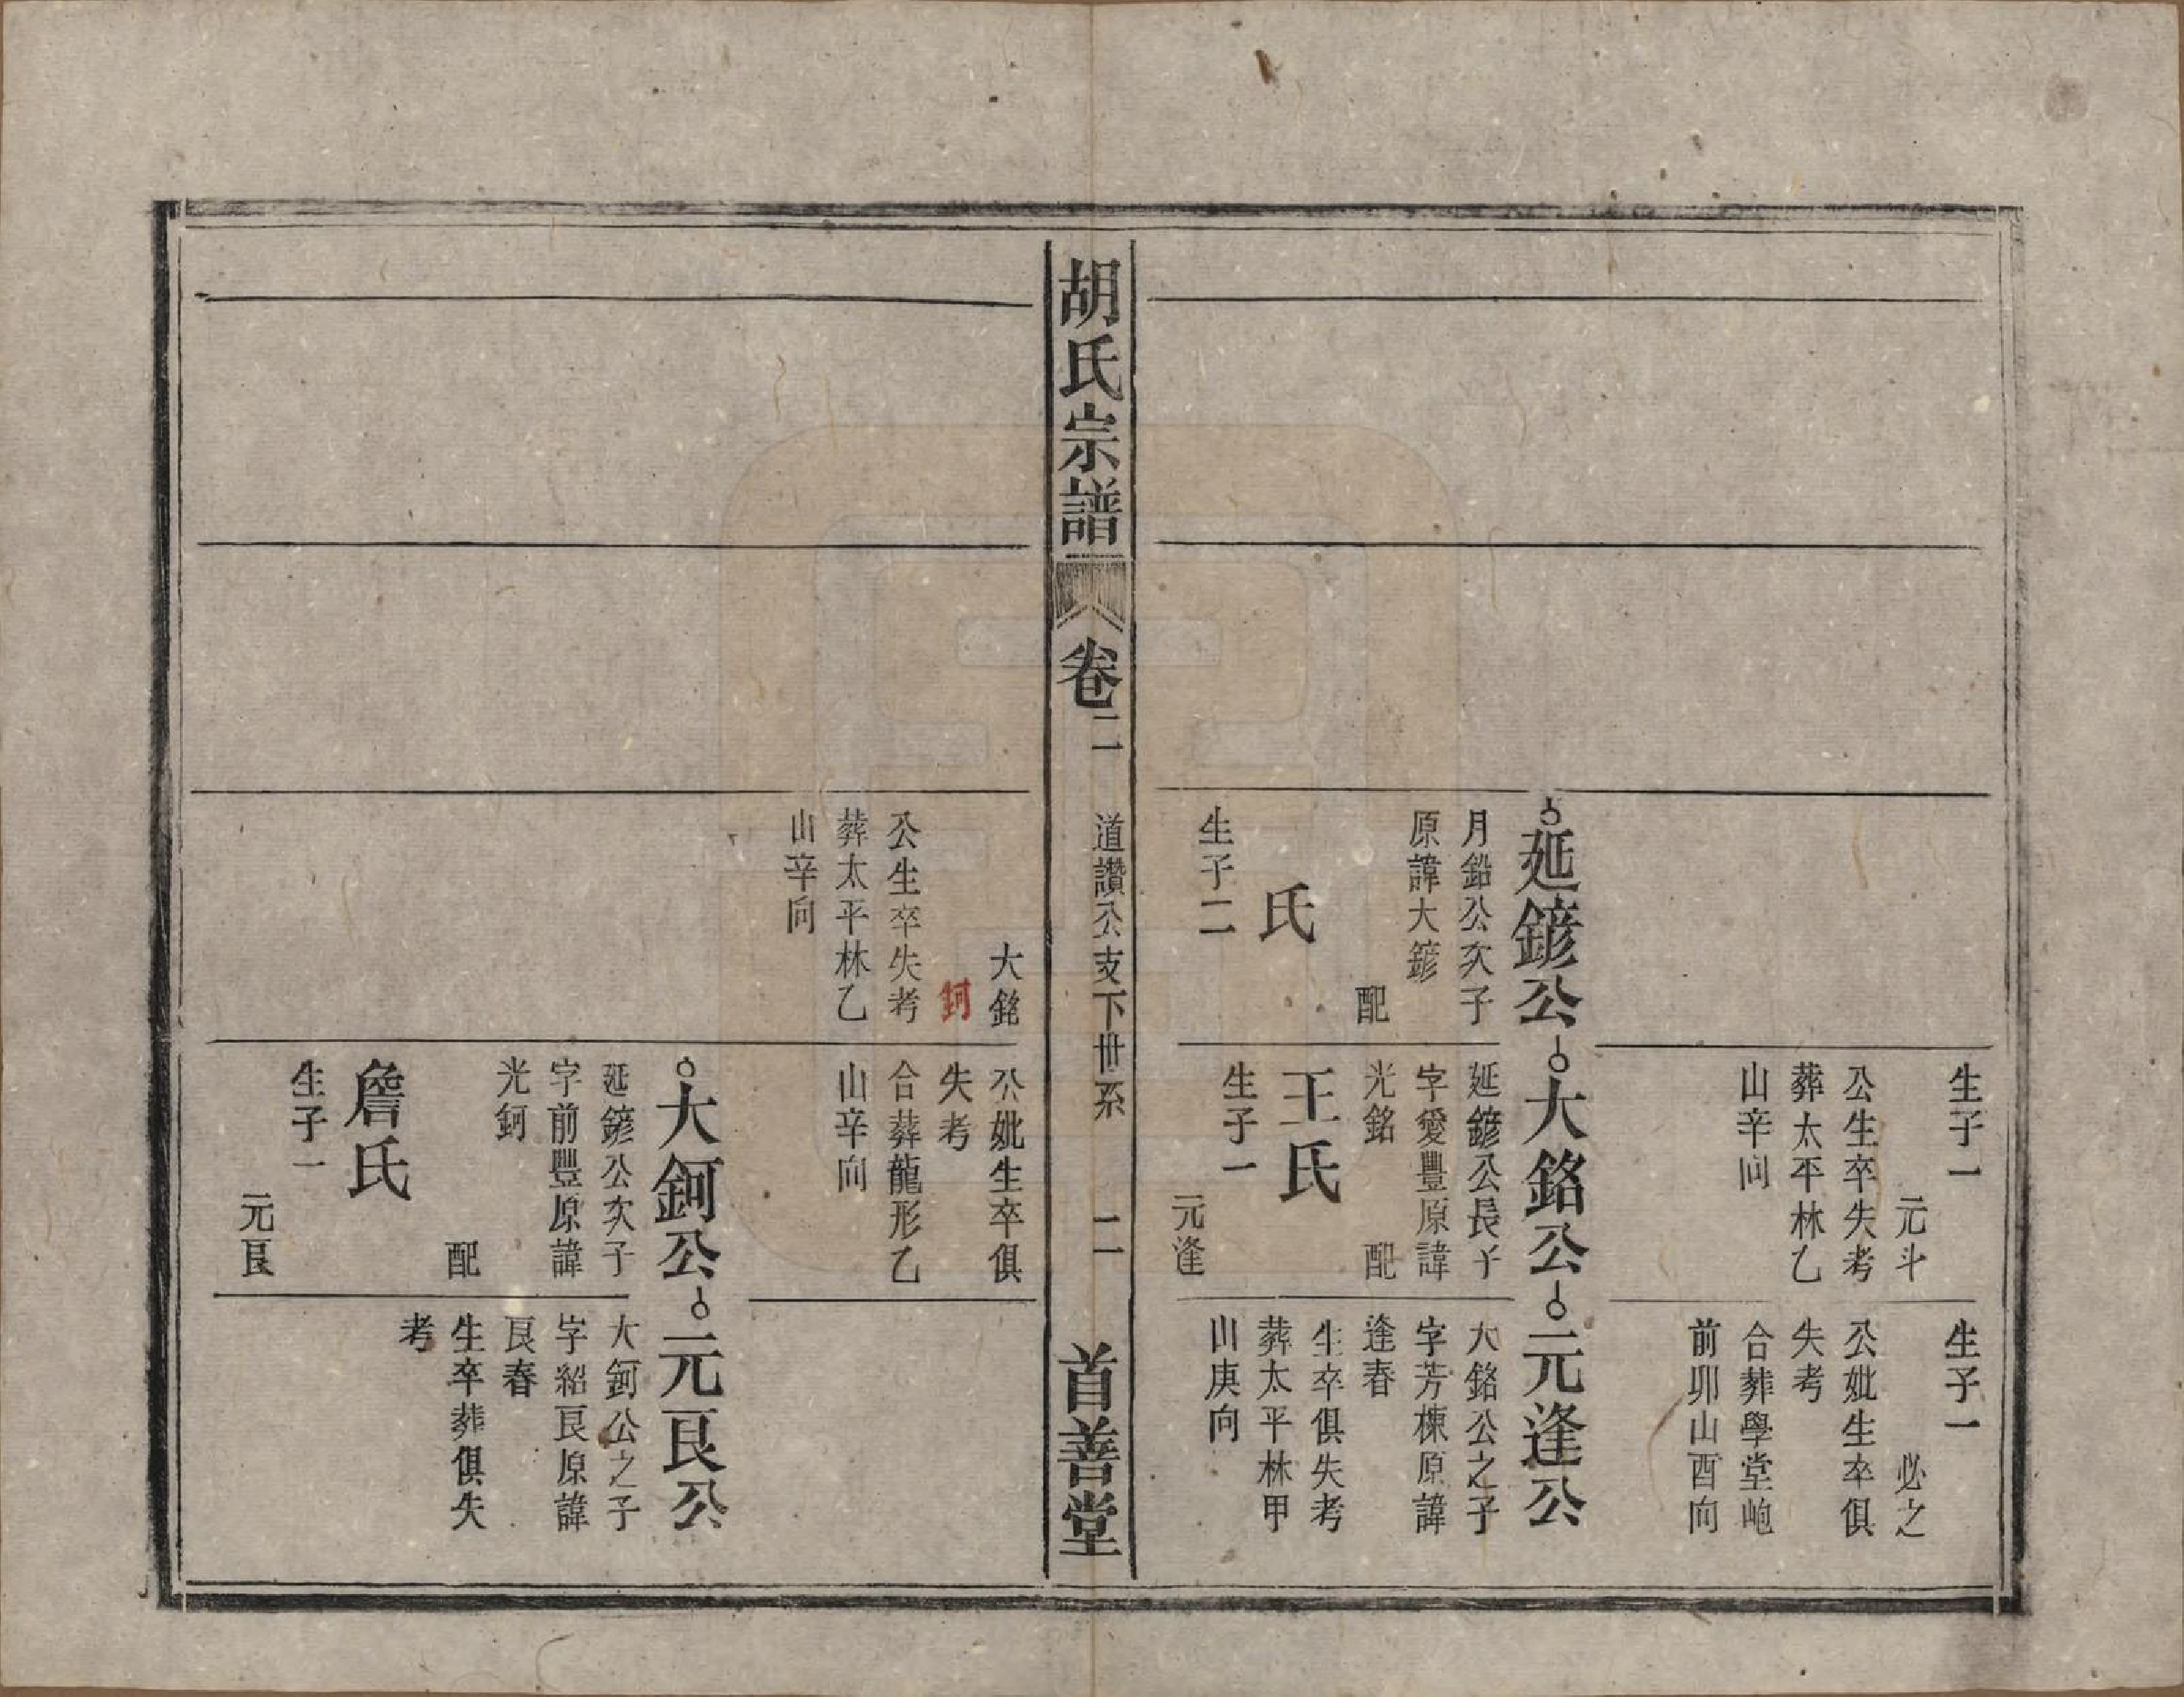 生子一
元斗
公生卒失考
葬太平林乙
山辛向
生子一
必之
公妣生卒俱
失考
合葬學堂㘐
前卯山酉向
延鏒公
月鉛公次子
原諱大鏒
配
氏
生子二
大銘公
延鏒公長子
字愛豐原諱
光銘
配
王氏
生子一
元逢
元逢公
大銘公之子
字芳棟原諱
逢春
生卒俱失考
葬太平林甲
山庚向
胡氏宗譜
卷二
道讚公支下世系
二
首善堂
大銘
鈳
公生卒失考
葬太平林乙
山辛向
公妣生卒俱
失考
合葬龍形乙
山辛向
大鈳公
延鏒公次子
字前豐原諱
光鈳
配
詹氏
生子一
元艮
元艮公
大鈳公之子
字紹艮原諱
艮春
生卒葬俱失
考